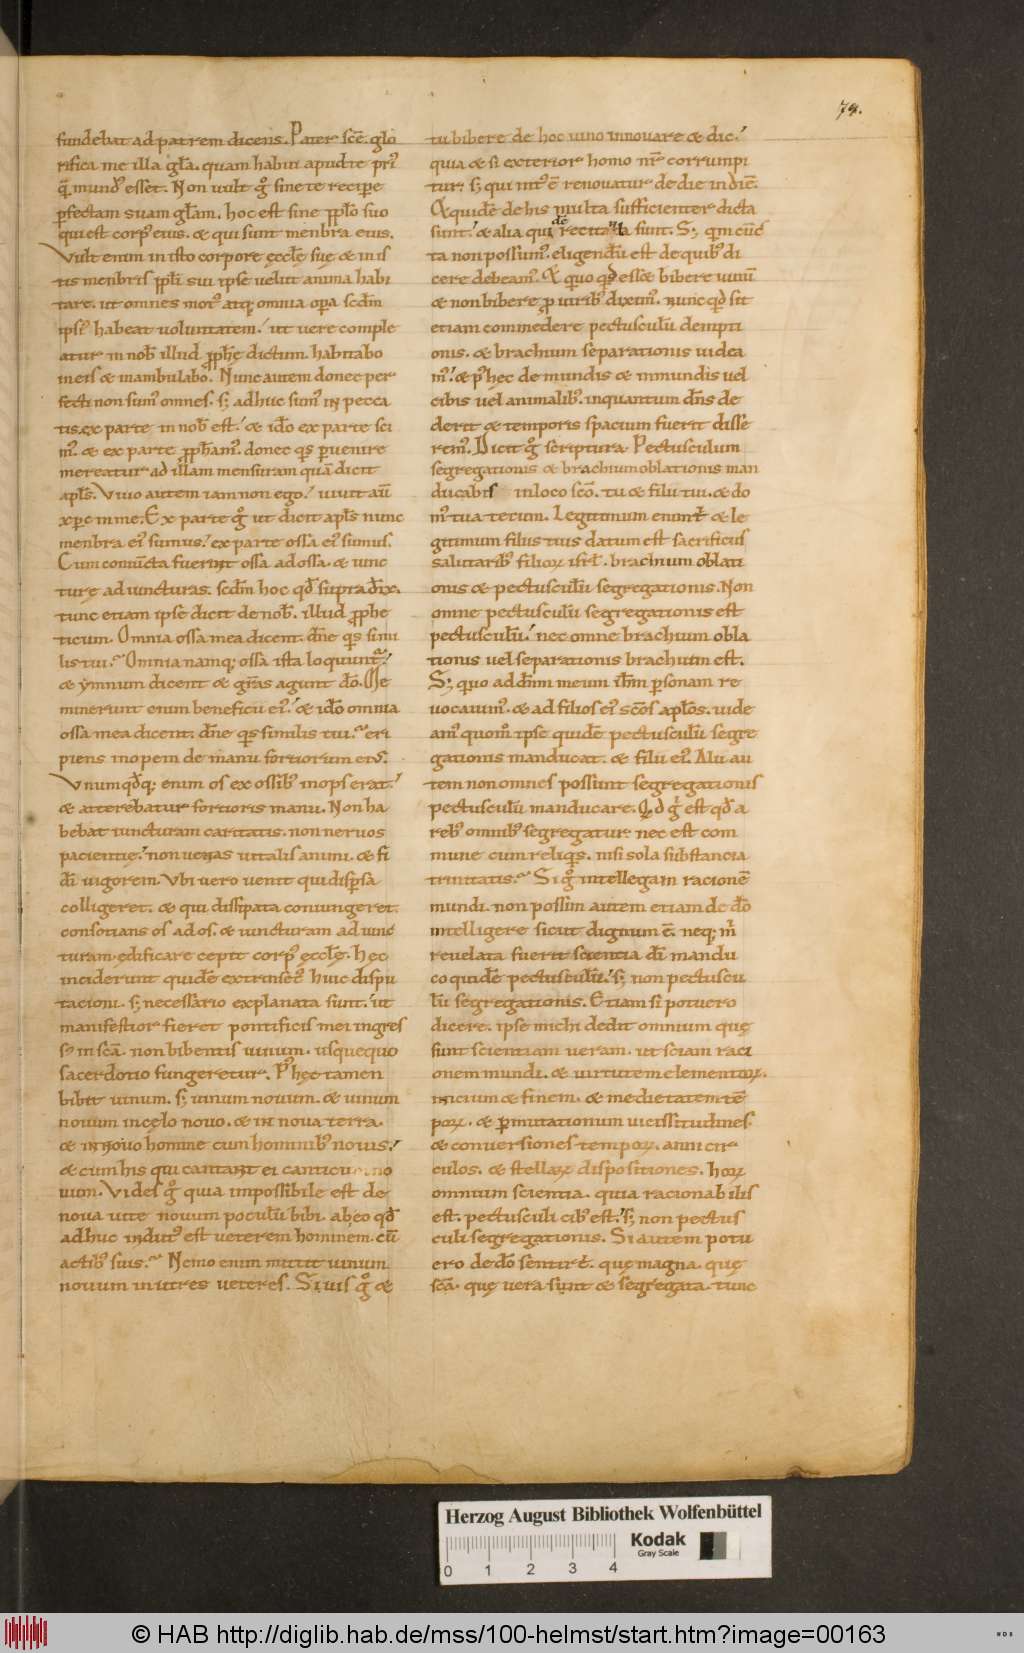 79.
fundebat ad patrem dicens. Pater scē. glo
rifica me illa gła. quam habui apud te pri᾽
q̄ mund᾽ esset. Non uult gͦ sine te recipe
ꝑfectam suam głam. hoc est sine ppło suo
qui est corp᾽ eius. & qui sunt menbra eius.
Vult enim in isto corpore ęccłę suę & in is
tis menbris ppłi sui ipse uelut anima habi
tare. ut omnes mot᾽ atq; omnia opa scdm
ipsi᾽ habeat uoluntatem. ut uere comple
atur in nob illud ꝓphę dictum. habitabo
in eis & inambulabo. Nunc autem donec per
fecti non sum᾽ omnes. s; adhuc sum᾽ in pecca
tis. ex parte in nob est. & ido ex parte sci
m᾽. & ex parte ꝓpham᾽. donec qs ꝑuenire
mereatur ad illam mensuram quā dicit
apłs. Viuo autem iam non ego. uiuit aū
xpc in me. Ex parte gͦ ut dicit apłs nunc
menbra ei᾽ sumus. ex parte ossa ei᾽ sumus.
Cum coniūcta fuerint ossa ad ossa. & iunc
turę ad iuncturas. scdm hoc qd supradix.
tunc etiam ipse dicit de nob. illud ꝓphe
ticum. Omnia ossa mea dicent. dne qs simi
lis tui. Omnia namq; ossa ista loquunt᾽.
& ymnum dicent & gras agunt do. Me
minerunt enim beneficii ei᾽. & ido omnia
ossa mea dicent. dne qs similis tui. eri
piens inopem de manu fortiorum ei᾽.
Vnumqdq; enim os ex ossib᾽ inops erat.
& atterebatur fortioris manu. Non ha
bebat iuncturam caritatis. non neruos
pacientię. non uenas uitalis animi. & fi
di uigorem. Vbi uero uenit qui dispsa
colligeret. & qui dissipata coniungeret.
consotians os ad os. & iuncturam ad iunc
turam. edificare cepit corp᾽ ęccłę. hęc
inciderunt quidē extrinsec᾽ huic dispu
tacioni. s; necessario explanata sunt. ut
manifestior fieret pontificis mei ingres
s᾽ in scā. non bibentis uinum. usquequo
sacerdotio fungeretur. P᾽ hęc tamen
bibit uinum. s; uinum nouum. & uinum
nouum in cęlo nouo. & in noua terra.
& in nouo homine cum hominib᾽ nouis.
& cum his qui cantant ei canticu no
uum. Vides gͦ quia impossibile est de
noua uite nouum poculū bibi. ab eo qd
adhuc indut᾽ est ueterem hominem. cū
actib᾽ suis. Nemo enim mittit uinum
nouum in utres ueteres. Si uis gͦ &
tu bibere de hoc uino innouare & dic.
quia & si exterior homo nr corrumpi
tur. s; qui int᾽ ē renouatur de die in diē.
Et quidē de his multa sufficienter dicta
sunt. & alia qui de recitata sunt. S; qm cūc
ta non possum᾽. eligendū est de quib᾽ di
cere debeam᾽. Et quo qd essę bibere uinū
& non bibere ꝓ uirib᾽ dixim᾽. nunc qd sit
etiam commedere pectusculū dempti
onis. & brachium separationis uidea
m᾽. & p᾽ hęc de mundis & inmundis uel
cibis uel animalib᾽. inquantum dns de
derit & temporis spacium fuerit disse
rem᾽. Dicit gͦ scriptura. Pectusculum
segregationis & brachium oblationis man
ducabis in loco scō. tu & filii tui. & do
m᾽ tua tecum. Legitimum enim t & le
gitimum filiis tuis datum est sacrificiis
salutarib᾽ filioꝝ isrł. brachium oblati
onis & pectusculū segregationis. Non
omne pectusculū segregationis est
pectusculū. nec omne brachium obla
tionis uel separationis brachium est.
S; quo ad dnm meum ihm personam re
uocauim᾽. & ad filios ei᾽ scōs apłos. uide
am᾽ quom ipse quidē pectusculū segre
gationis manducat. & filii ei᾽. Alii au
tem non omnes possunt segregationis
pectusculū manducare. Qd gͦ est qd a
reb᾽ omnib᾽ segregatur nec est com
mune cum reliquis. nisi sola substancia
trinitatis. Si gͦ intellegam racionē
mundi. non possim autem etiam de do
intelligere sicut dignum ē. neq; m
reuelata fuerit scientia di mandu
co quidē pectusculū. s; non pectuscu
lū segregationis. Etiam si potuero
dicere. ipse michi dedit omnium quę
sunt scientiam ueram. ut sciam raci
onem mundi. & uirtutem elementoꝝ.
inicium & finem. & medietatem tē
poꝝ. & ꝑmutationum uicissitudines.
& conuersiones tempoꝝ. anni cir
culos. & stellaꝝ dispositiones. hoꝝ
omnium scientia. quia racionabilis
est. pectusculi cib᾽ est. s; non pectus
culi segregationis. Si autem potu
ero de do sentire. quę magna. quę
scā. quę uera sunt & segregata. tunc
Herzog August Bibliothek Wolfenbüttel
Kodak
Gray Scale
0 1 2 3 4
© HAB http://diglib.hab.de/mss/100-helmst/start.htm?image=00163